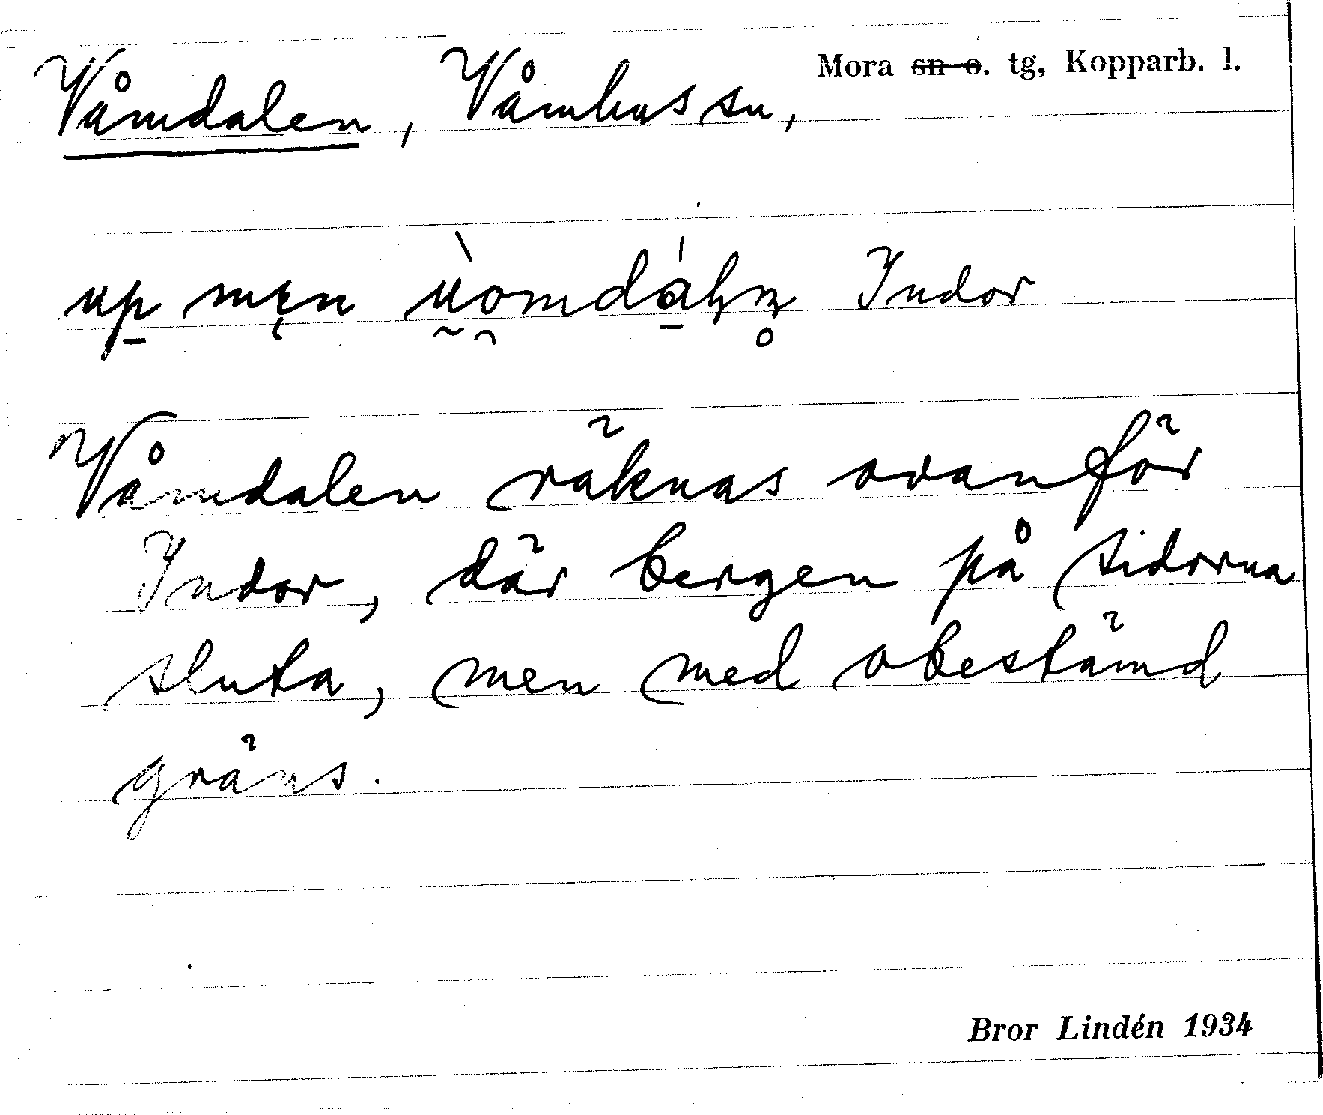 Våmdalen, Våmhus sn, Mora sn o. tg, Kopparb. l.
up men Indor
Våmdalen räknas ovanför
Indor, där bergen på sidorna
sluta, men med obestämd
gräns.
Bror Lindén 1934